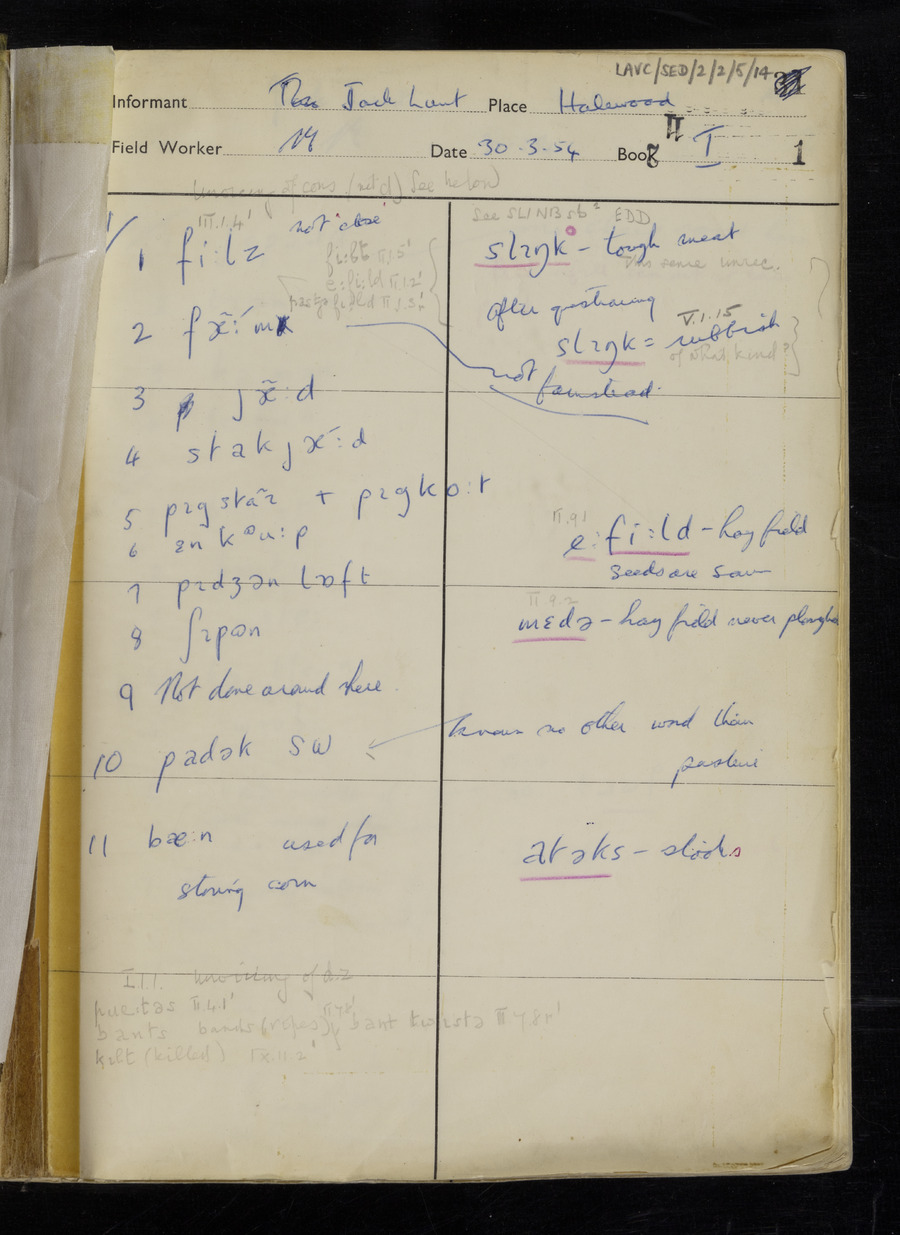 LAVC/SED/2/2/5/14
Informant Jack Lunt Place Halewood
Field Worker Date 30.3.54 Book I 1
II
Unvoicing of cons. (not d) See below
III.1.4'
1 fi:lz not close
fi:łt II.1.5'
e:fi:ld II.1.2'
2
3 jæ̃:d
4 stakjæ:d
5 pɪgstaɪ + pɪgkɔ:t
6 ɛnkᵒu:p
7 pɪdʒən lɔft
8 ʃɪpən
9 Not done around here.
10 padək SW
11 bæ:n used for
storing corn
I.1.1. unvoicing of d.z
II.4.1'
bants bands (ropes) II 7 8' bant twistə II 7 8'
kɪlt (killed) IX.11.2'
See SLINB EDD
slɪŋk – tough meat
after
V.1.15
slɪŋk = rubbish
of what kind?
not farmstead.
II.9.1
e:fi:ld – hay field
seeds are sown
II 9.2
mɛdə – hay field never ploughed
knows no other word than
pasture
atəks – stooks